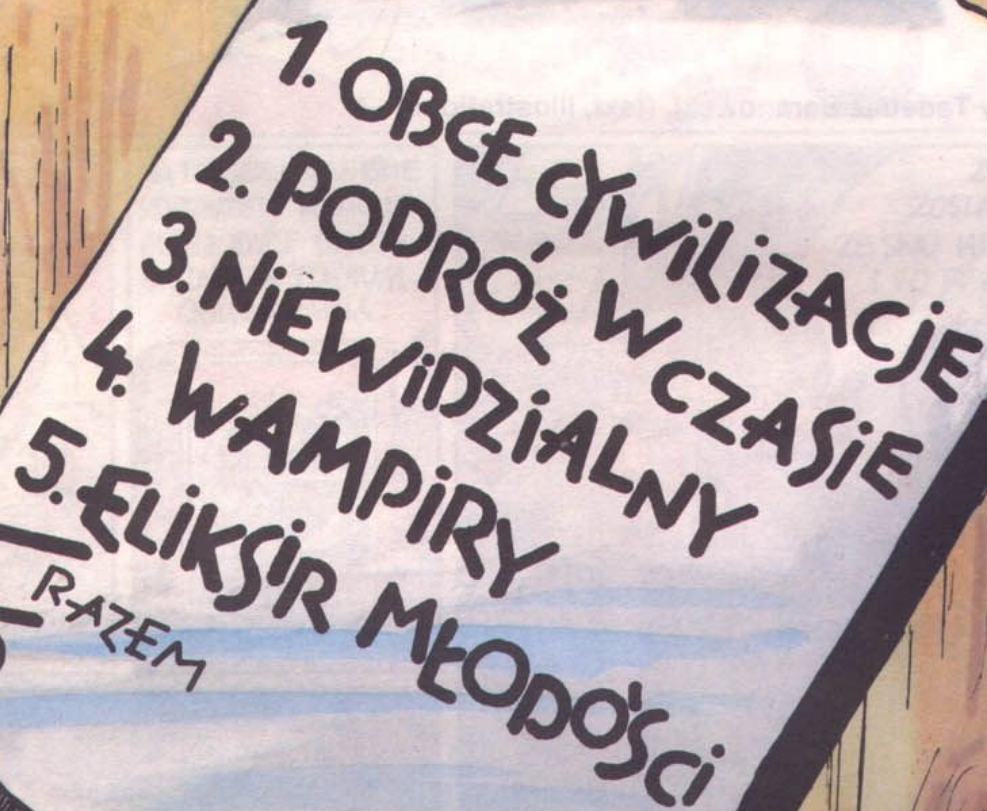 1. OBCE CYWILIZACJE
2. PODRÓŻ W CZASIE
3. NIEWIDZIALNY
4. WAMPIRY
5. ELIKSIR MŁODOŚCI
RAZEM